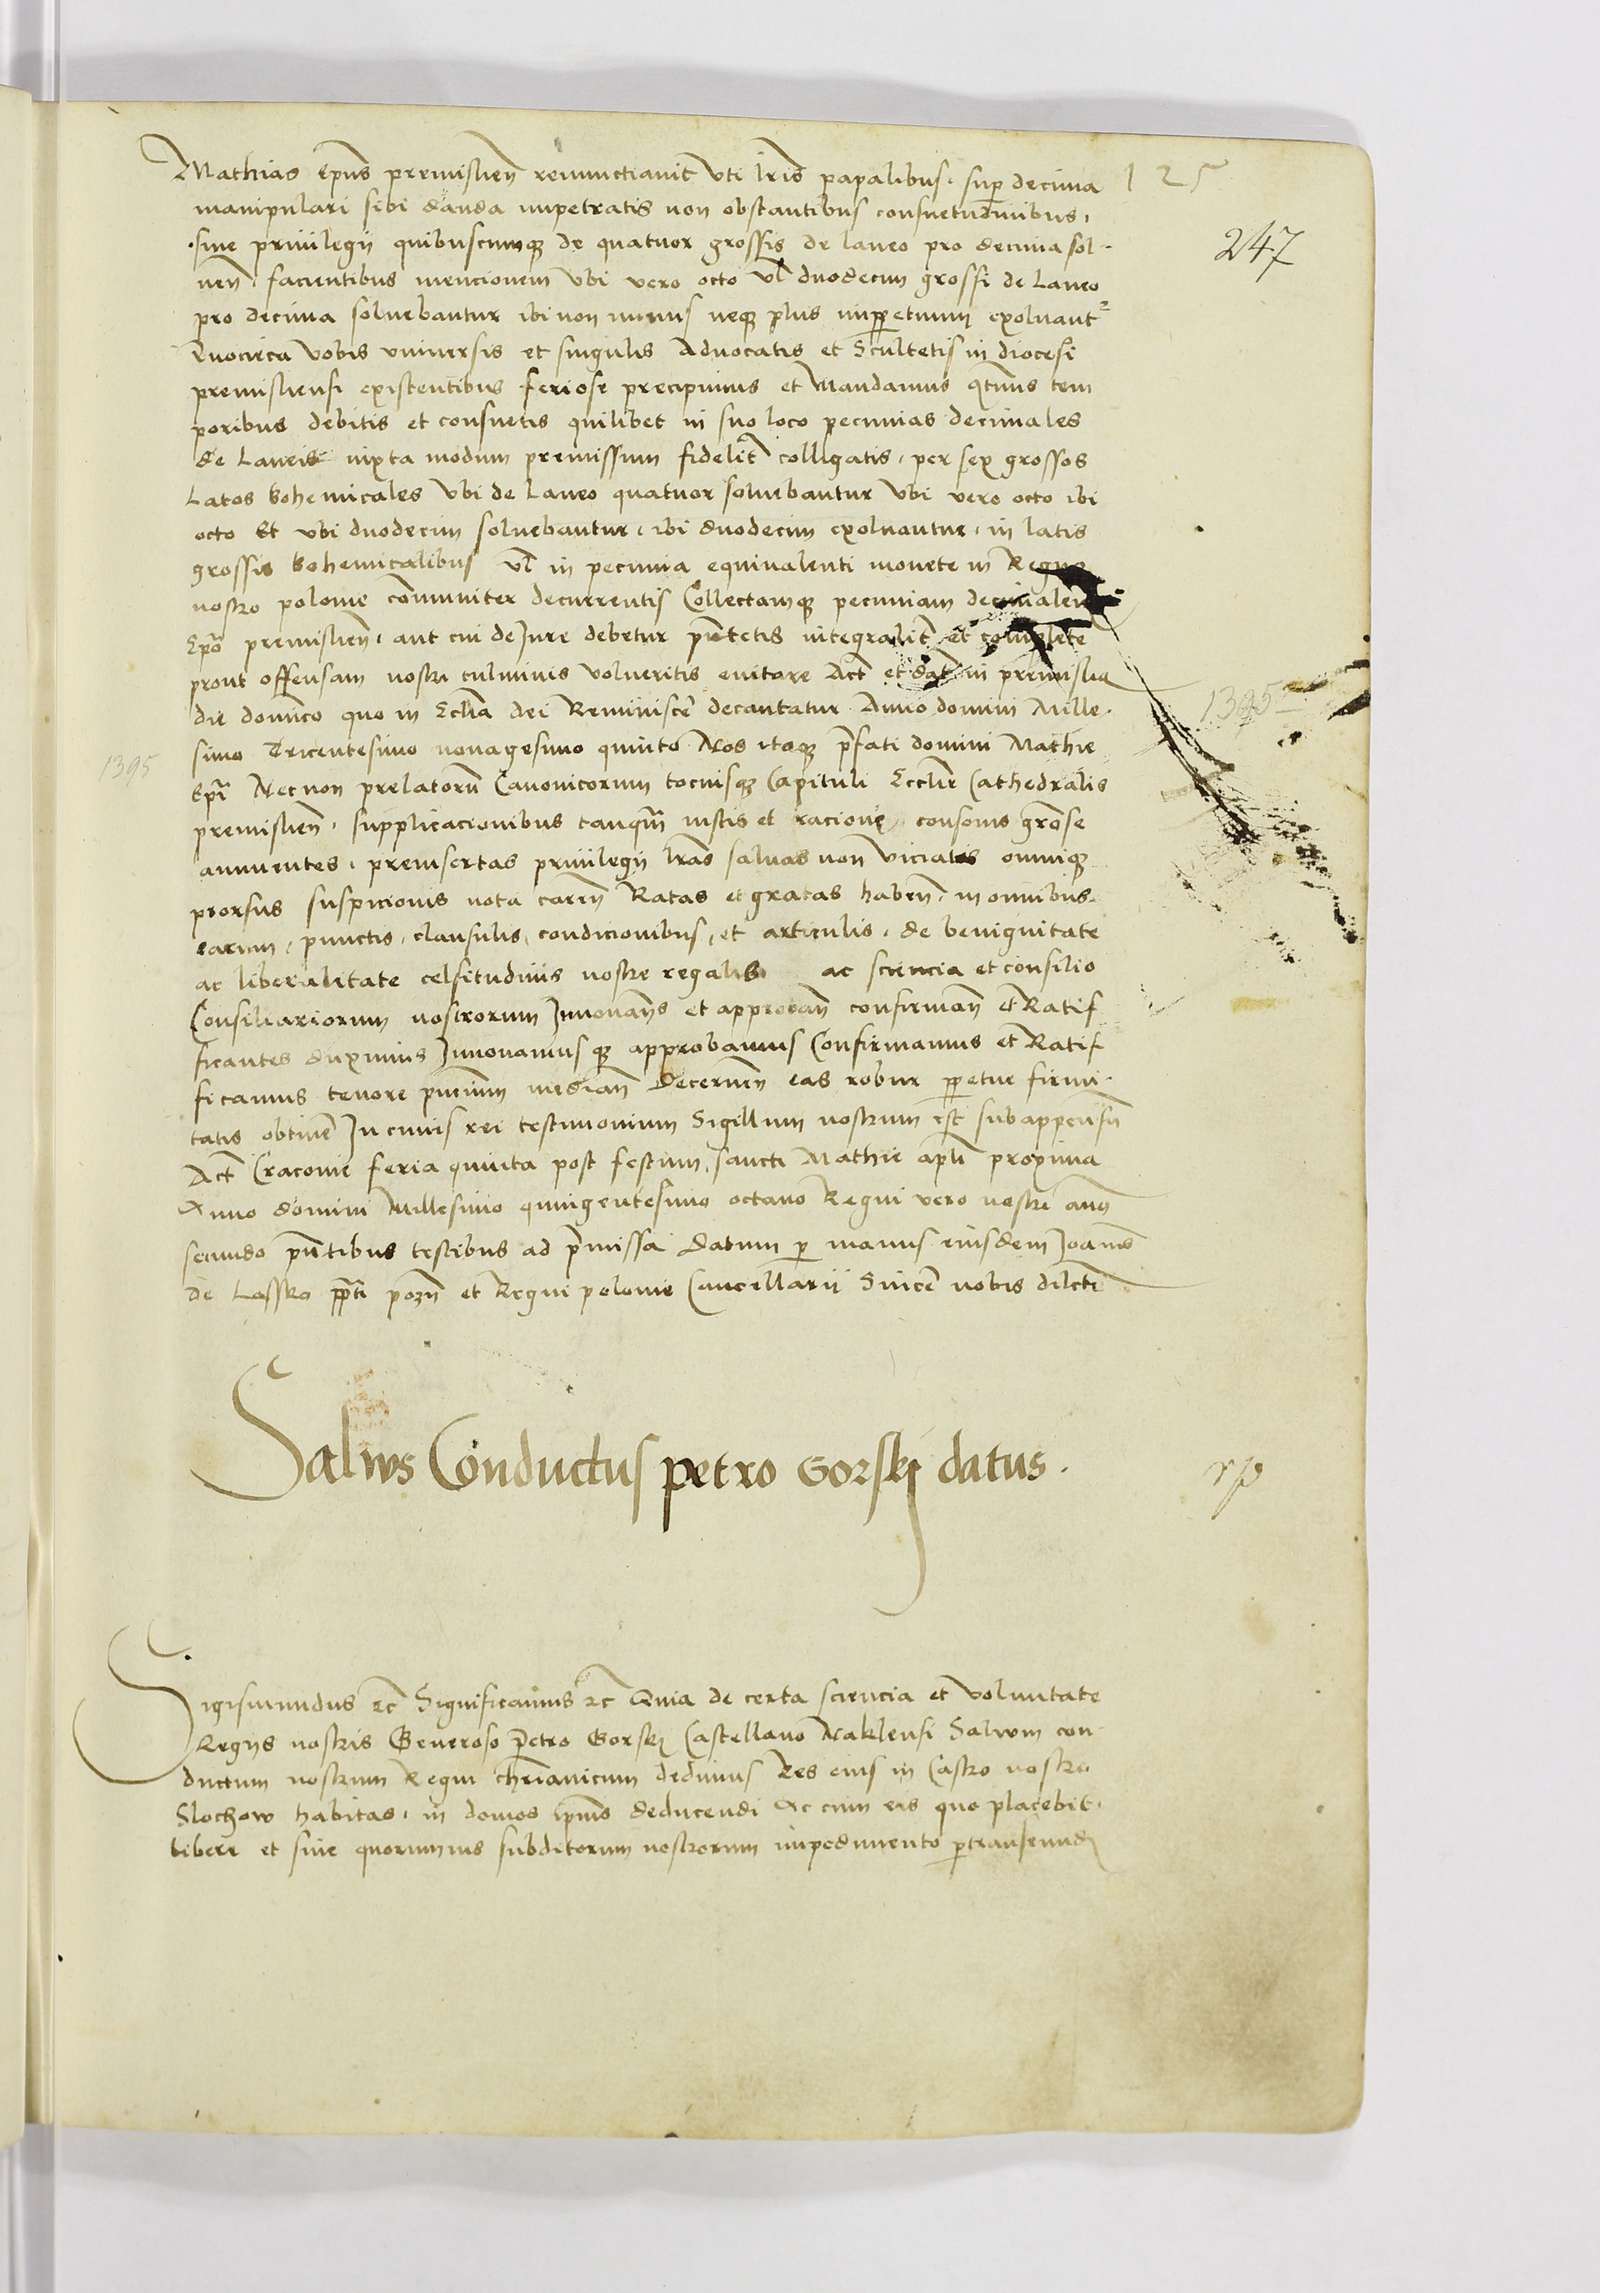 Mathias Epus premislien renunctiavit uti lris papalibus super decima 125
manipulari sibi danda impetratis non obstantibus consuetudinibus,
sive privilegy quibuscumque de quatuor grossis de laneo pro decima sol- 247
ven facientibus mencionem Ubi vero octo vl duodecim grossi de Laneo
pro decima solvebantur ibi non minus neque plus imperpetuum exolvant
Quocirca vobis universis et singulis Advocatis et Scultetis in diocesi
premisliensi existentibus seriose precipimus et Mandamus qtenus tem
poribus debitis et consuetis quilibet in suo loco pecunias decimales
de Laneis iuxta modum premissum fidelit colligatis, per sex grossos
Latos bohemicales Ubi de Laneo quatuor solvebantur Ubi vero octo ibi
octo Et ubi duodecim solvebantur, ibi duodecim exolvantur, in latis
grossis bohemicalibus vl in pecunia equivalenti monete in Regno
nostro polonie comuniter decurrentis Collectamque pecuniam decimalem
Epo premislien, aut cui de Jure debetur pntetis integralit et complete
prout offensam nostri culminis volueritis evitare Act et dat in premislia
die dominico quo in Ecclia dei Reminiscere decantatur Anno domini Mille- 1395
simo Tricentesimo nonagesimo quinto Nos itaque prefati domini Mathie
1395 Epi Nec non prelatorum Canonicorum tociusque Capituli Ecclie Cathedralis
premislien, supplicacionibus tanquam iustis et racione consonis grose
annuentes, preinsertas privilegy lras salvas non viciatas omnique
prorsus suspicionis nota caren Ratas et gratas haben, in omnibus
earum, punctis, clausulis, condicionibus, et articulis, de benignitate
ac liberalitate celsitudinis nostre regalis ac sciencia et consilio
Consiliariorum nostrorum Innovans et approban confirman et Ratif
ficantes duximus Innovamus que approbamus Confirmamus et Ratif
ficamus tenore pntium median Decernen eas robur perpetue firmi-
tatis obtinere In cuius rei testimonium Sigillum nostrum est subappensum
Act Cracovie feria quinta post festum sancti Mathie apli proxima
Anno domini Millesimo quingentesimo octavo Regni vero nostri anno
secundo pntibus testibus ad premissa Datum per manus eiusdem Joannis
de Lassko ppti pozn et Regni polonie Cancellarii Sincere nobis dilcti
Salvus Conductus petro Gorskj datus. rp
Sigismundus etc Significamus etc Quia de certa sciencia et voluntate
Regys nostris Generoso Petro Gorskj Castellano Naklensi Salvum con-
ductum nostrum Regni christianicum dedimus Res eius in Castro nostro
Slochow habitas, in domos ipsius deducendi Ac cum eis quo placebit,
libere et sine quorumvis subditorum nostrorum impedimento pertranseundi